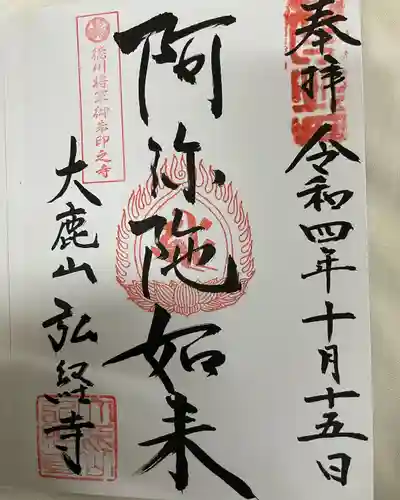 奉拝
令和四年十月十五日
阿弥陀如来
徳川将軍御朱印之寺
大鹿山
弘経寺